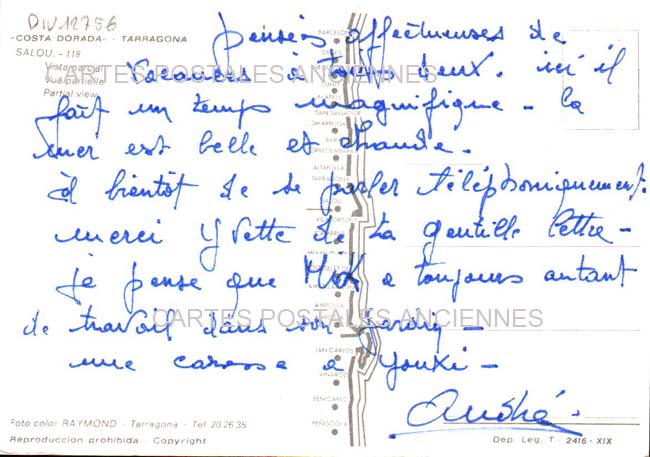 DIV12786
-COSTA DORADA- - TARRAGONA
SALOU. - 118
Vista parcial
Vue partielle
Partial view
CARTES POSTALES ANCIENNES
pensées affectueuses de
Vacanciers à tous deux. ici il
fait un temps magnifique - la
mer est belle et chaude.
à bientôt de se parler téléphoniquement.
merci Yvette de ta gentille lettre -
je pense que Max a toujours autant
de travail dans son jardin -
une caresse a Youki -
André.
CARTES POSTALES ANCIENNES
BARCELONA
SAN SALVADOR
ALTAFULLA
TARRAGONA
SALOU
AMPOLLA
SAN CARLOS
VINAROZ
BENICARLO
PEÑISCOLA
Foto color RAYMOND - Tarragona - Tel 20 26 35
Reproduccion prohibida - Copyright
Dep. Leg. T. - 2416 - XIX